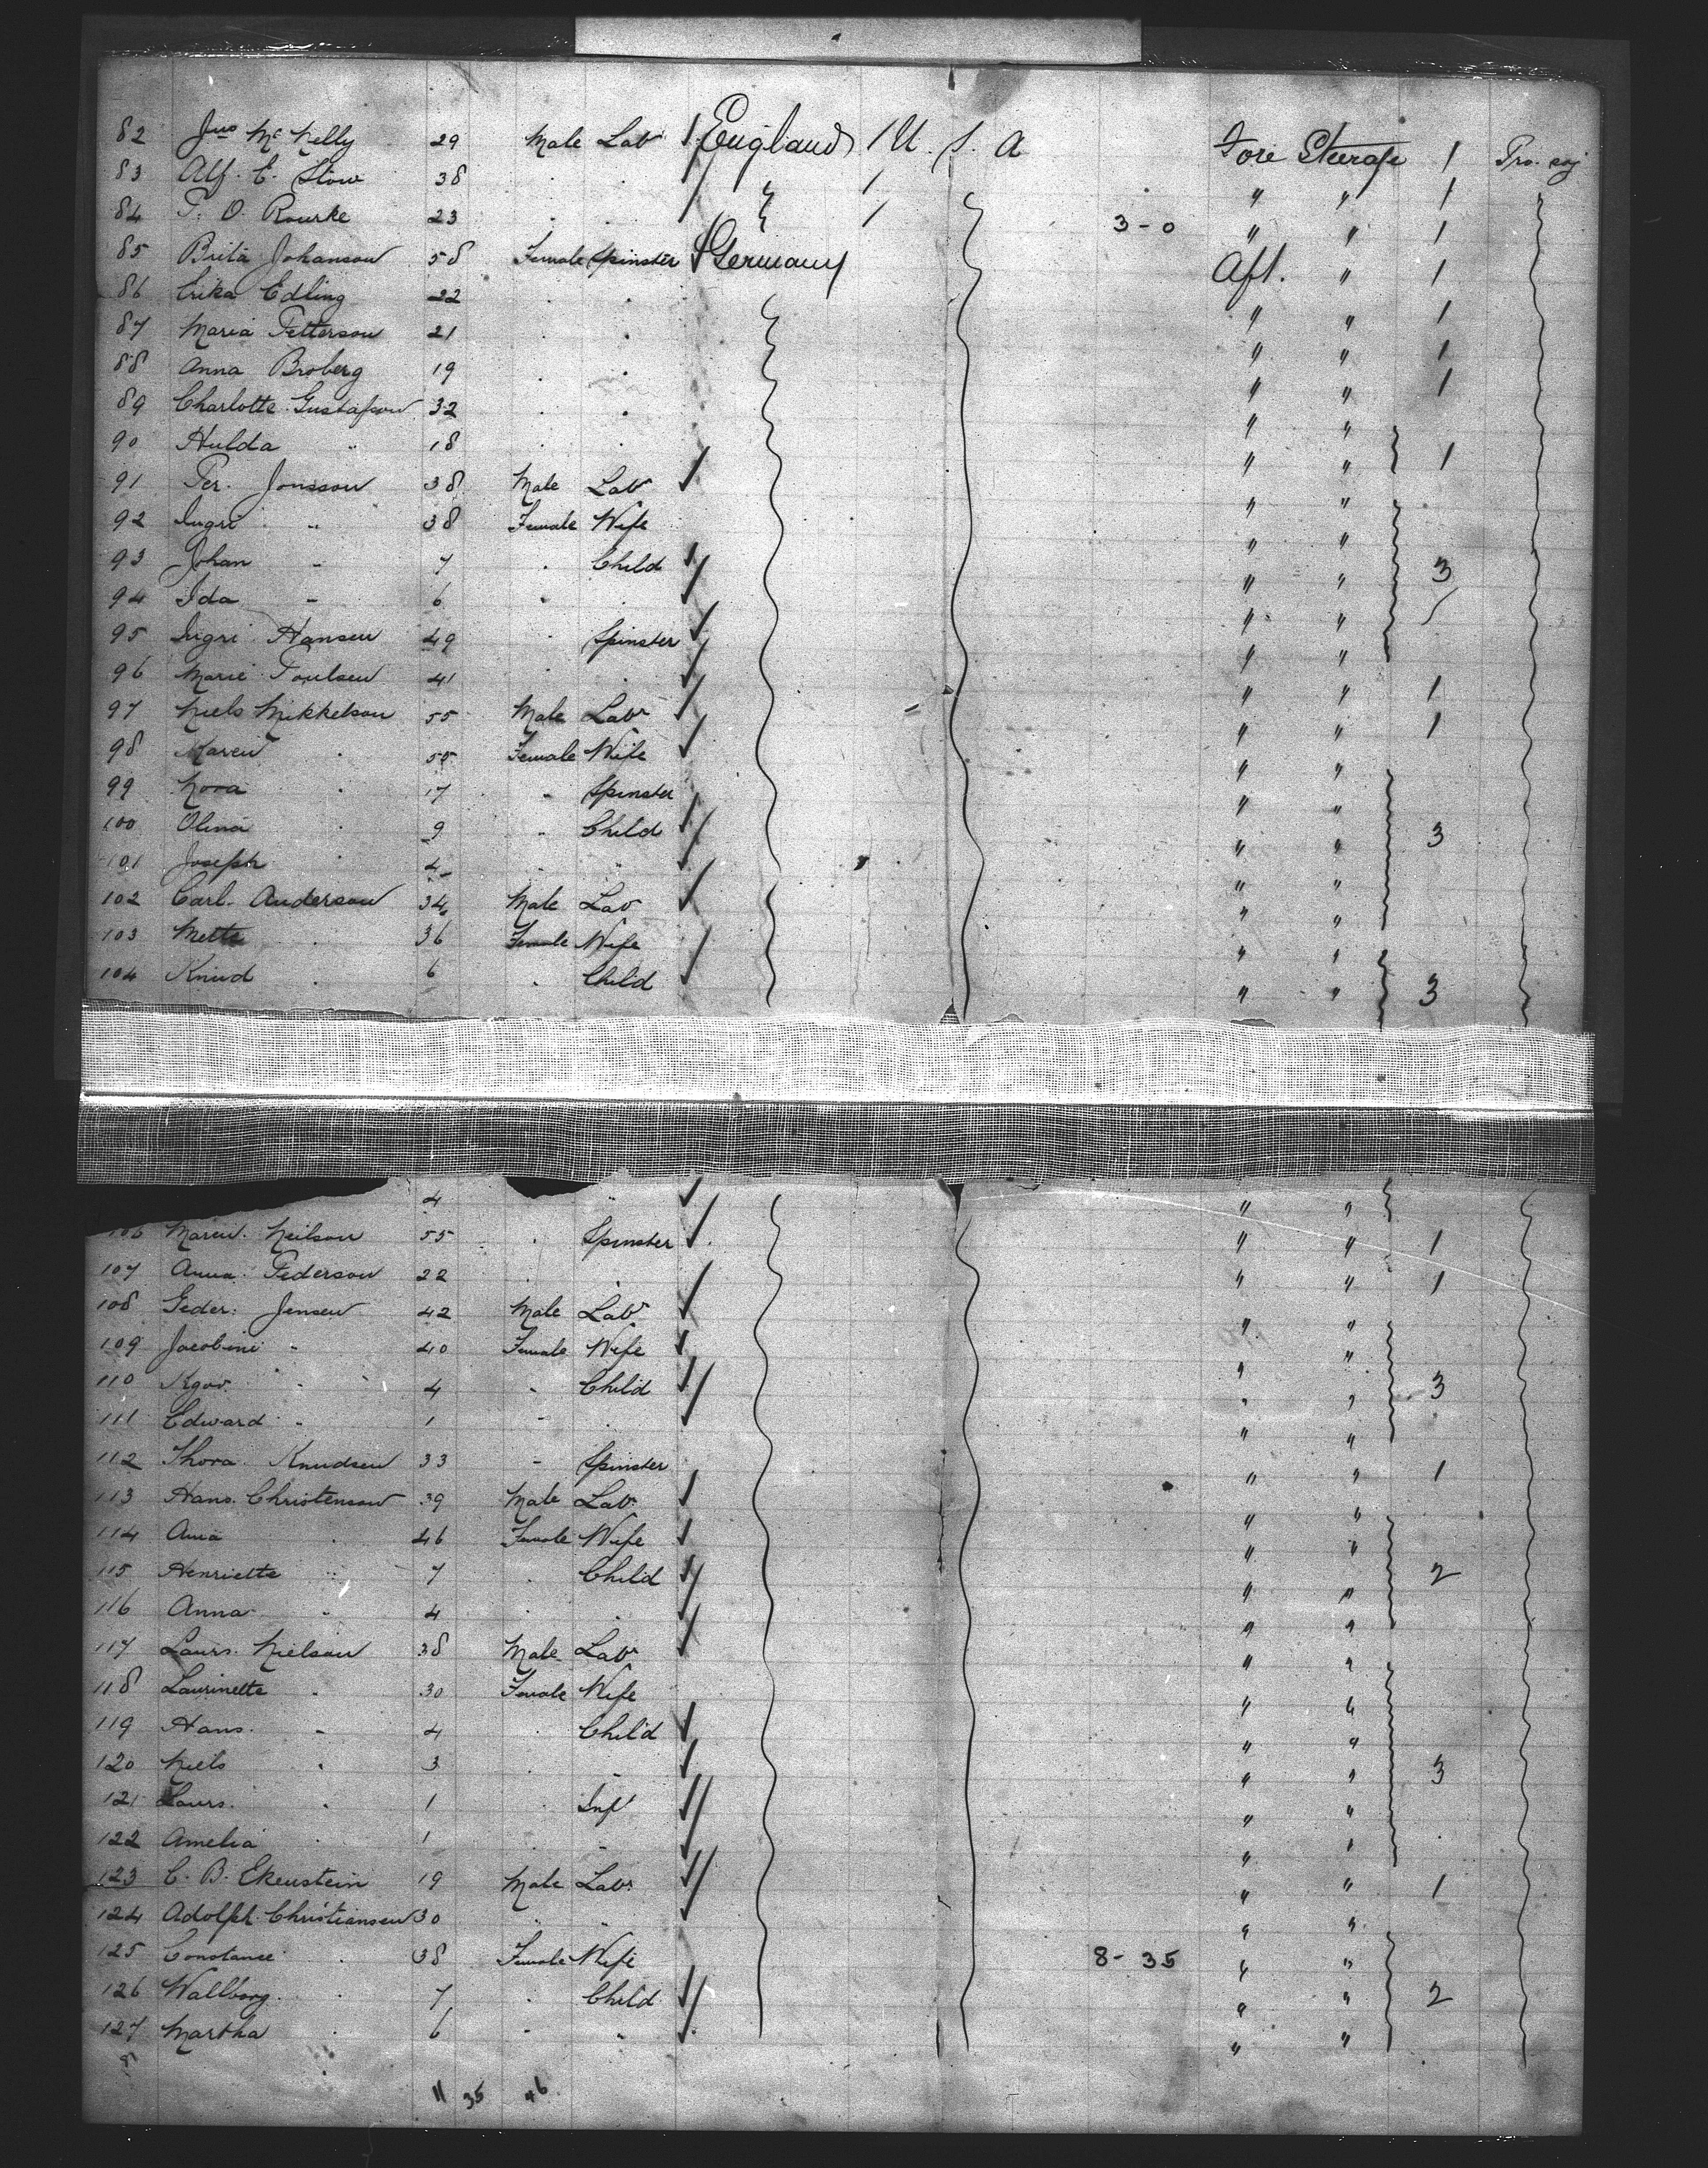 82 Jno Mc Kelly 29 Male Lab England U. S. A Fore Steerage 1 Pro. soj
83 Alf. E. Stow 38 . . " " 1
84 T. O. Rourke 23 . . 3-0 " " 1
85 Brita Johanson 58 Female Spinster Germany Aft. " 1
86 Erika Edling 22 . . " " 1
87 Maria Petterson 21 . . " " 1
88 Anna Broberg 19 . . " " 1
89 Charlotte Gustafson 32 . . " "
90 Hulda " 18 . . " " 1
91 Per. Jonsson 38 Male Lab " "
92 Ingri " 38 Female Wife " "
93 Johan " 7 . Child " " 3
94 Ida " 6 . . " "
95 Ingri Hansen 49 . Spinster " "
96 Marie Poulsen 41 . . " " 1
97 Niels Mikkelson 55 Male Labr " " 1
98 Karen . 55 Female Wife " "
99 Nora . 17 " Spinster " "
100 Olina . 9 " Child " " 3
101 Joseph . 4 . " " "
102 Carl Anderson 34 Male Lab " "
103 Mette . 36 Female Wife " "
104 Knud . 6 . Child " " 3
4 " " "
106 Maren Neilson 55 . Spinster " " 1
107 Anna Pederson 22 . . " " 1
108 Peder Jensen 42 Male Labr " "
109 Jacobine " 40 Female Wife " "
110 " 4 " Child " " 3
111 Edward " 1 " . " "
112 Thora Knudsen 33 " Spinster " " 1
113 Hans. Christenson 39 Male Lab. " "
114 Ana . 46 Female Wife " "
115 Henriette " 7 . Child " " 2
116 Anna " 4 . . " "
117 Laurs. Nielson 38 Male Labr " "
118 Laurinette . 30 Female Wife " "
119 Hans. " 4 . Child " "
120 Niels . 3 . " " " 3
121 Laurs. . 1 . Inf " "
122 Amelia . 1 . " " "
123 C. B. Ekenstein 19 Male Labr " " 1
124 Adolph Christiansen 30 " " " "
125 Constance . 38 Female Wife 8-35 " "
126 Wallborg . 7 . Child " " 2
127 Martha . 6 " " " "
8
11 35 46